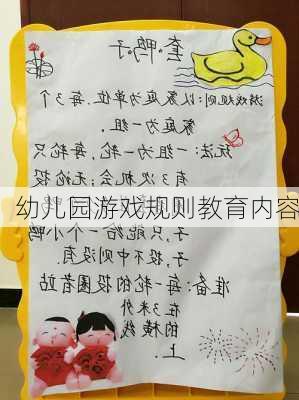 套·鸭子
游戏规则:以家庭为单位,每3个
家庭为一组。
玩法:一组为一轮,每轮只
有3次机会;无论投
幼儿园游戏规则教育内容
子,只能给一个小鸭
子,投不中则没有.
准备:每一轮的投圈者站
在3米外
的横线
上.